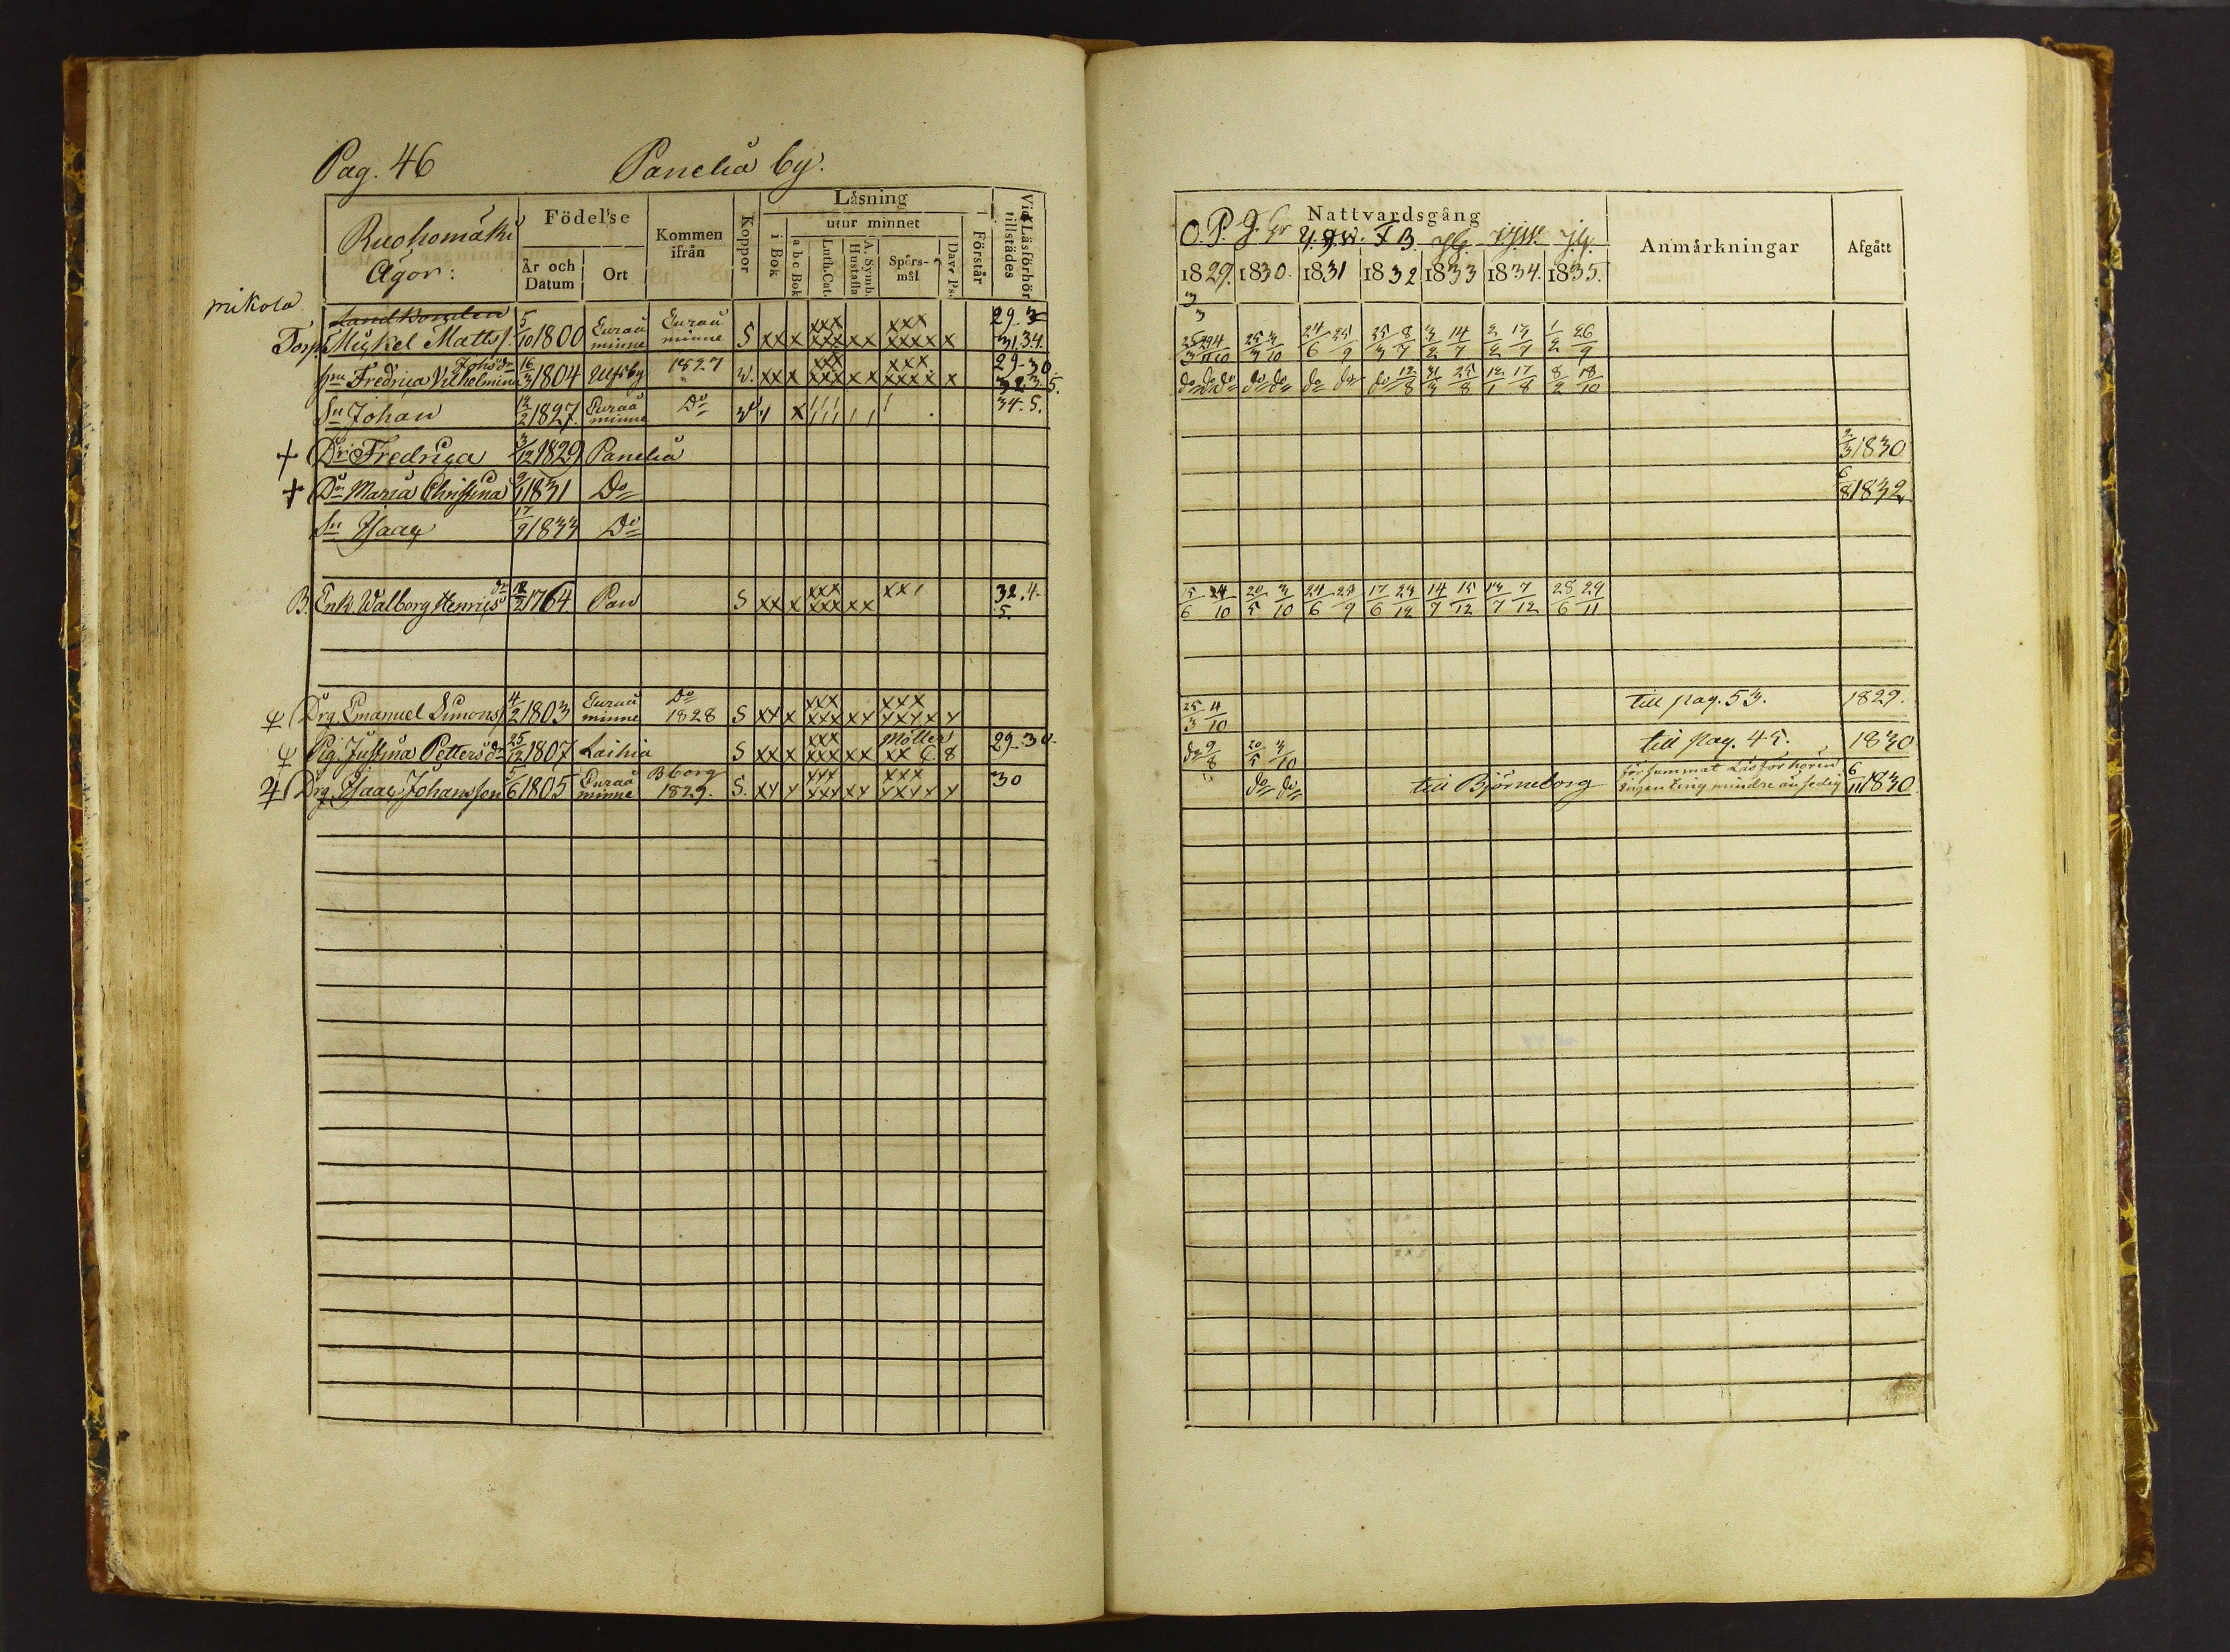 Pag. 46 Panelia by.
Ruohomäki
Ägor:
Födelse
År och Datum
Ort
Kommen ifrån
Koppor
Läsning
utur minnet
i Bok
a b c Bok
Luth. Cat.
A. Symb. Hustafla
Spörsmål
Dav. Ps.
Förstår
Vid Läsförhör tillstädes
mikola
Torp. Mickel Matts s. 5/10 1800 Euraå minne Euraå minne S xx x xxx xxx xx xxx xxxxx x 29. 31.34.
Johs dr
hu Fredrica Vilhelmina 16/3 1804 Ulfsby 1827 v. xx x xxx xxx xx xxx xxxx x 29.30 32.3.5.
Sn Johan 12/2 1827. Euraå minne Do v 34.5.
+ Dr Fredrica 3/12 1829 Panelia
+ Dr Maria Christina 9/1 1831 Do
Sn Isaac 17/9 1833 Do
B. Enk. Walborg Henrics dr 1764 Pan S xx x xxx xxx xx xx 32.4.5.
Drg. Emanuel Simons s 4/2 1803 Euraå minne Do 1828 S xx x xxx xxx xx xxx
Pig. Justina Petters dr 25/12 1807 Laihia S xx x xxx xxx xx Möller xx C. 8 29.30.
Drg. Isaac Johansson 5/6 1805 Euraå minne Bborg 1829. S. 30
Nattvardsgång
O. P. G. Gr
1829. 1830. 1831 1832 1833 1834. 1835.
Anmärkningar
Afgått
25/3 4/10 25/3 3/10 24/6 25/9 25/3 8/7 3/2 14/7 2/2 13/7 1/2 26/9
do do do do do do do do 12/8 31/3 25/8 12/1 17/8 8/2 18/10
2/3 1830
6/8 1832
15/6 24/10 20/5 3/10 24/6 25/9 17/6 23/12 14/7 15/12 13/7 7/12 28/6 29/11
25/3 4/10 till pag. 53. 1829.
do 9/8 20/5 3/10 till pag. 45. 1830
do do till Björneborg försummat Läsförhören ingenting mindre än sedig 6/11 1830